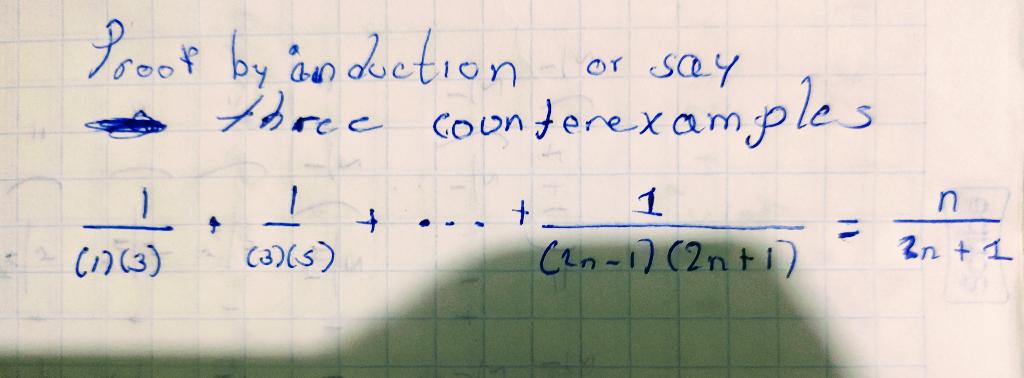 Proof by induction or say
three counterexamples
1/(1)(3) + 1/(3)(5) + ... + 1/(2n-1)(2n+1) = n/2n+1